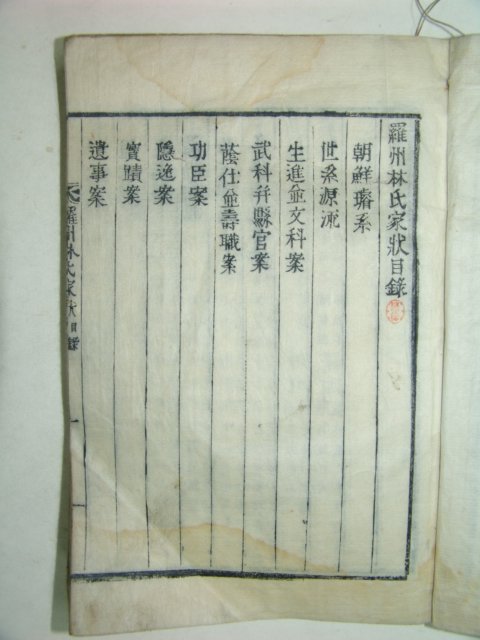 羅州林氏家狀目錄
朝鮮璿系
世系源流
生進並文科案
武科并縣官案
蔭仕並壽職案
功臣案
隱逸案
實蹟案
遺事案
羅州林氏家狀目錄 一